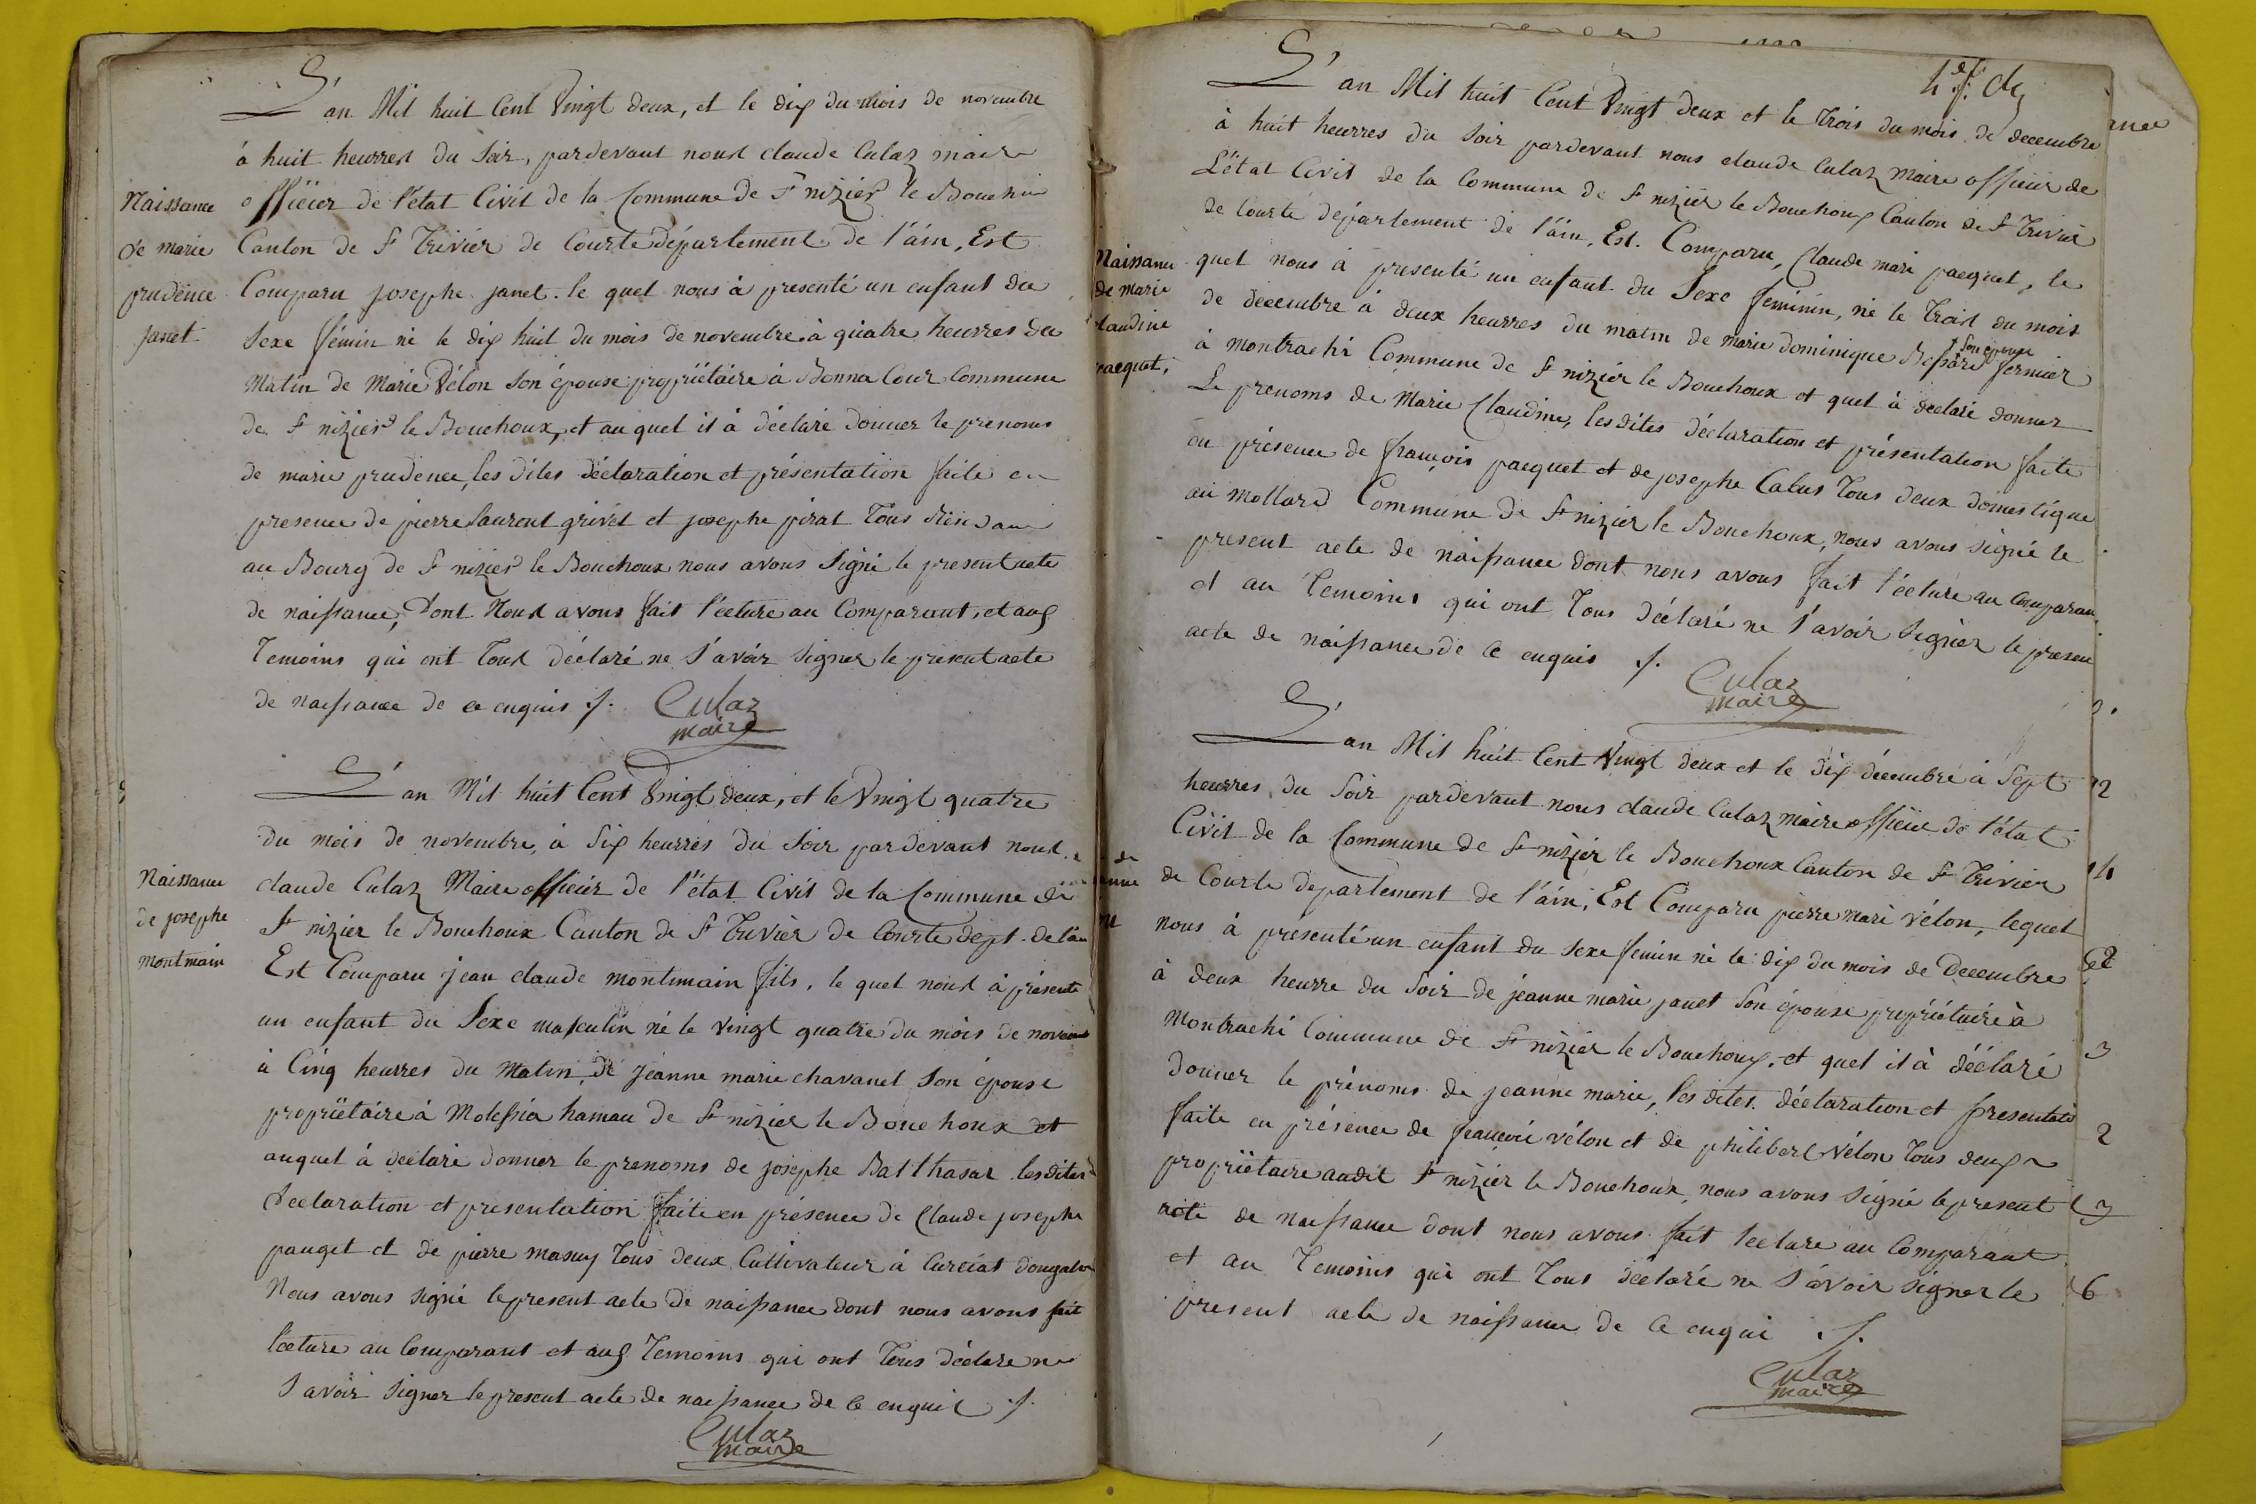 L'an Mil huit Cent Vingt deux, et le dix du mois de novembre
à huit heurres du soir, pardevant nous claude Culaz maire
officier de l'état Civil de la Commune de St nizier le Bouchoux
Canton de St Trivier de Courte département de l'ain, Est
Comparu josephe janet. le quel nous à presenté un enfant du
Sexe fémin né le dix huit du mois de novembre à quatre heurres du
Matin de Marie Vélon son épouse propriétaire à Bonna Cour Commune
de St nizier le Bouchoux, et au quel il à déclaré donner le prenoms
de marie prudence, les dites déclaration et présentation faite en
presence de pierre laurent grivet et josephe pirat Tous
au Bourg de St nizier le Bouchoux nous avons Signé le present acte
de naissance, Dont Nous avons fait l'ecture au Comparant, et aux
Temoins qui ont Tous déclaré ne S'avoir signer le present acte
de naissance de ce enquis ./.
Culaz
maire
Naissance
de marie
prudence
janet
L'an Mil huit Cent Vingt deux, et le Vingt quatre
du mois de novembre, à Six heurres du Soir pardevant nous
claude Culaz Maire officier de l'état Civil de la Commune de
St nizier le Bouchoux Canton de St Trivier de Courte dept. de l'ain
Est Comparu jean claude montmain fils, le quel nous à présenté
un enfant du Sexe masculin né le vingt quatre du mois de novemb
à Cinq heurres du Matin, de jeanne marie chavanel Son épouse
propriétaire à Molessia hamau de St nizier le Bouchoux et
auquel à declaré donner le prenoms de josephe Balthasar les dites
declaration et presentation faite en présence de Claude josephe
pauget et de pierre masuy Tous deux Cultivateur à Curciat dongalon
Nous avons signé le present acte de naissance dont nous avons fait
lecture au Comparant et aux Temoins qui ont Tous déclaré ne
S avoir signer le present acte de naissance de Ce enquis ./.
Culaz
maire
Naissance
de josephe
montmain
L'an Mil huit Cent Vingt deux et le Trois du mois de decembre
à huit heurres du Soir pardevant nous claude Culaz Maire officier de
L'état Civil de la Commune de St nizier le Bouchoux Canton de St Trivier
de Courte département de l'ain, Est. Comparu, Claude mari pacquet, le
quel nous à presenté un enfant du Sexe feminin, né le trois du mois
de decembre à deux heurres du matin de marie dominique Bessard son épouse fermier
à montrachi Commune de St nizier le Bouchoux et quel à declaré donner
Le prenoms de Marie Claudine, les dites déclaration et présentation faite
en présence de françois pacquet et de josephe Calus Tous deux domestique
au mollard Commune de St nizier le Bouchoux, nous avons signé le
present acte de naissance dont nous avons fait l'ecture au Comparan
et au Temoins qui ont Tous déclaré ne S'avoir Signer le presen
acte de naissance de Ce enquis ./.
Culaz
maire
Naissance
de marie
claudine
pacquet,
L'an Mil huit Cent Vingt deux et le dix décembre à Sept
heurres du Soir pardevant nous claude Culaz maire officier de l'état
Civil de la Commune de St nizier le Bouchoux Canton de St Trivier
de Courte departement de l'ain, Est Comparu pierre mari vélon, lequel
nous à présenté un enfant du sexe femin né le dix du mois de Decembre
à deux heurre du Soir de jeanne marie janet Son épouse propriétaire à
Montrachi Commune de St nizier le Bouchoux, et quel il à déclaré
donner le prénoms de jeanne marie, les dites déclaration et presentatio
faite en présence de françoi vélon et de philibert Vélon Tous deux
propriétaire audit St nizier le Bouchoux, nous avons signé le present
acte de naissance dont nous avons fait lecture au Comparant
et au Temoins qui ont Tous déclaré ne S'avoir signer le
present acte de naissance de Ce enqui ./.
Culaz
maire
12
14
3
2
3
6